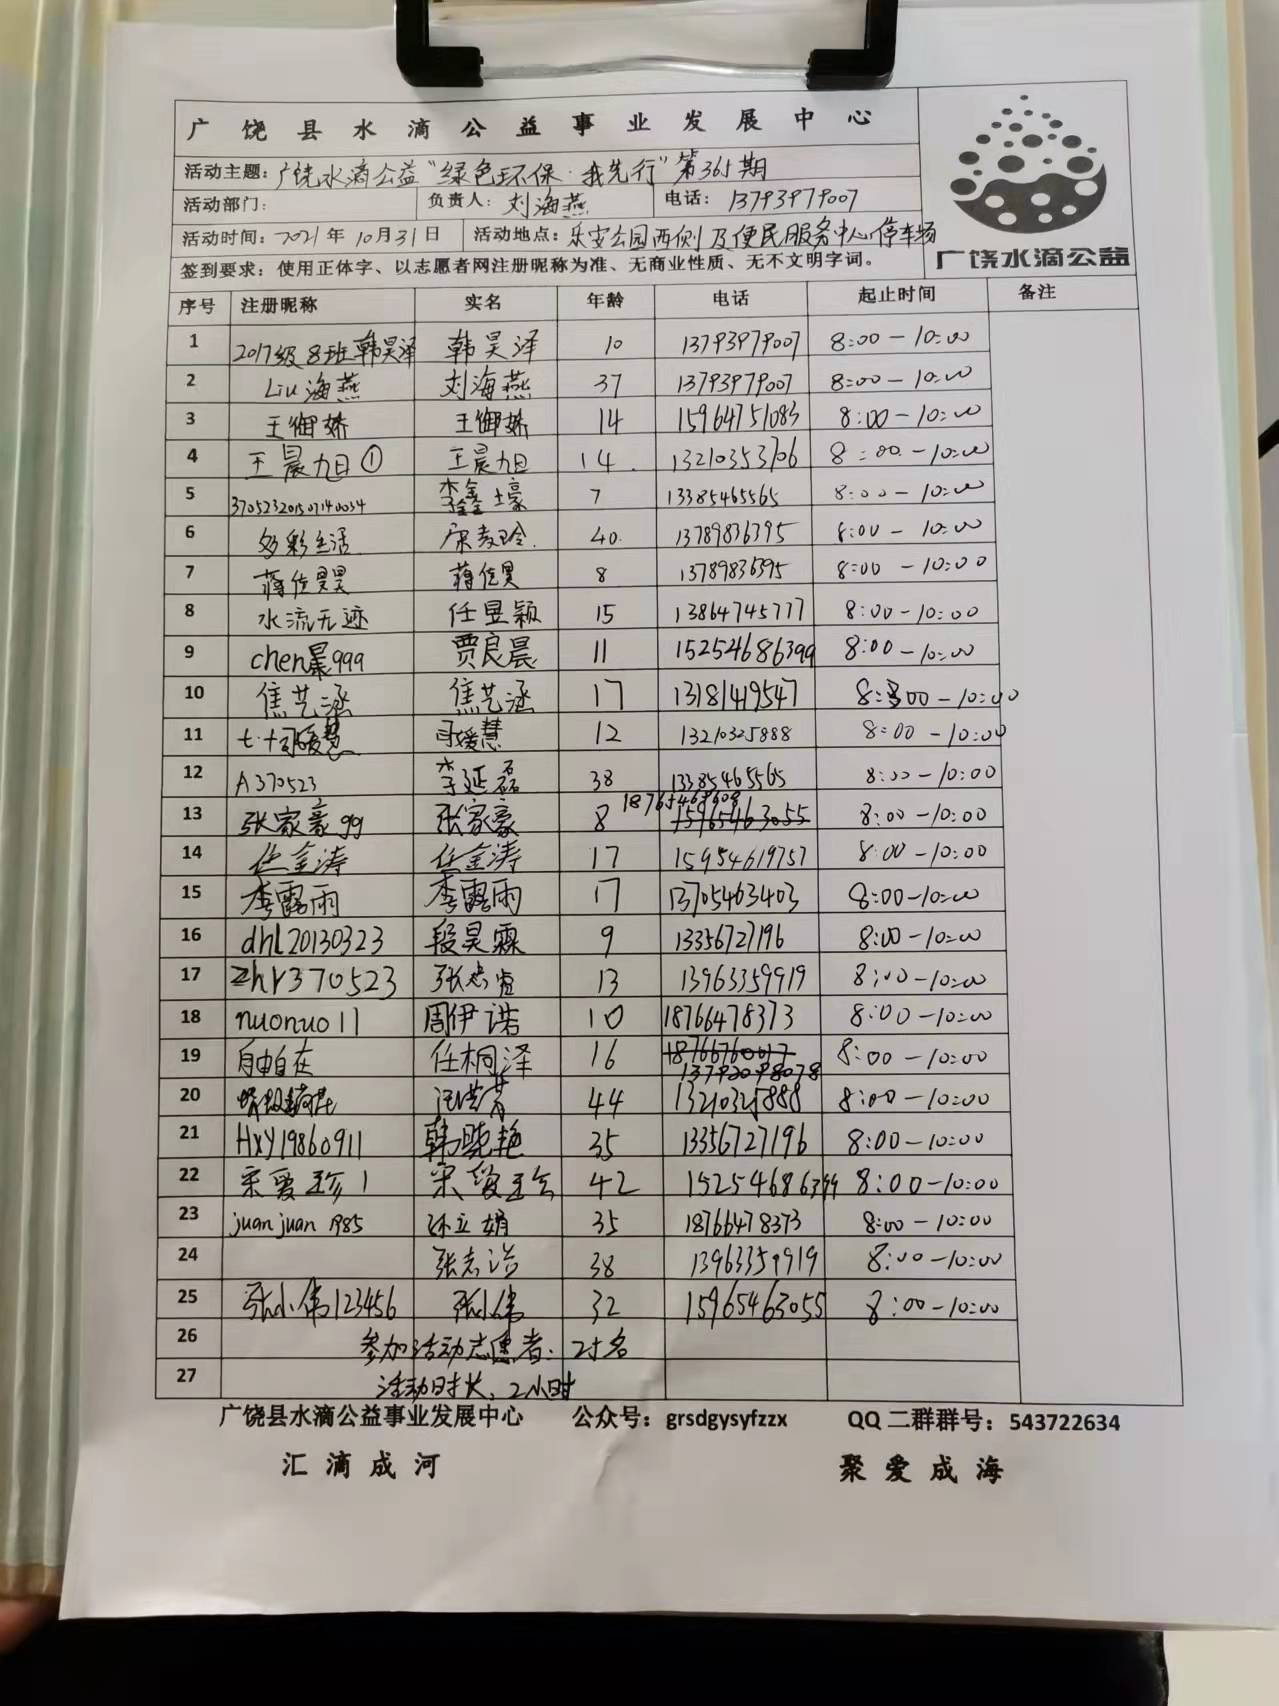 广饶县水滴公益事业发展中心
活动主题：广饶水滴公益"绿色环保·我先行"第365期
活动部门： 负责人：刘海燕 电话：13793979007
活动时间：2021年10月31日 活动地点：乐安公园西侧及便民服务中心停车场
广饶水滴公益
签到要求：使用正体字、以志愿者网注册昵称为准、无商业性质、无不文明字词。
序号 注册昵称 实名 年龄 电话 起止时间 备注
1 2017级8班韩昊泽 韩昊泽 10 13793979007 8:00-10:00
2 Liu海燕 刘海燕 37 13793979007 8:00-10:00
3 王御娇 王御娇 14 15964751083 8:00-10:00
4 王晨旭① 王晨旭 14 13210353706 8:00-10:00
5 370523201507140034 李鑫壕 7 13385465565 8:00-10:00
6 多彩生活 40 13789836395 8:00-10:00
7 8 13789836395 8:00-10:00
8 水流无迹 任昱颖 15 13864745777 8:00-10:00
9 chen晨999 贾良晨 11 15254686399 8:00-10:00
10 焦艺涵 焦艺涵 17 13181419547 8:00-10:00
11 12 13210325888 8:00-10:00
12 A370523 李延磊 38 13385465565 8:00-10:00
13 张家豪99 张家豪 8 15965463055 8:00-10:00
14 任金涛 任金涛 17 15954619757 8:00-10:00
15 李露雨 李露雨 17 13705463403 8:00-10:00
16 dhl20130323 段昊霖 9 13356727196 8:00-10:00
17 zhr370523 13 13963359919 8:00-10:00
18 nuonuo11 周伊诺 10 18766478373 8:00-10:00
19 自由自在 任桐泽 16 13792098078 8:00-10:00
20 44 13210325888 8:00-10:00
21 Hxy19860911 韩晓艳 35 13356727196 8:00-10:00
22 宋爱珍1 宋爱珍 42 15254686399 8:00-10:00
23 juanjuan1985 孙立娟 35 18766478373 8:00-10:00
24 张志浩 38 13963359919 8:00-10:00
25 张小伟123456 张小伟 32 15965463055 8:00-10:00
26 参加活动志愿者：25名
27 活动时长：2小时
广饶县水滴公益事业发展中心 公众号：grsdgysyfzzx QQ二群群号：543722634
汇滴成河 聚爱成海